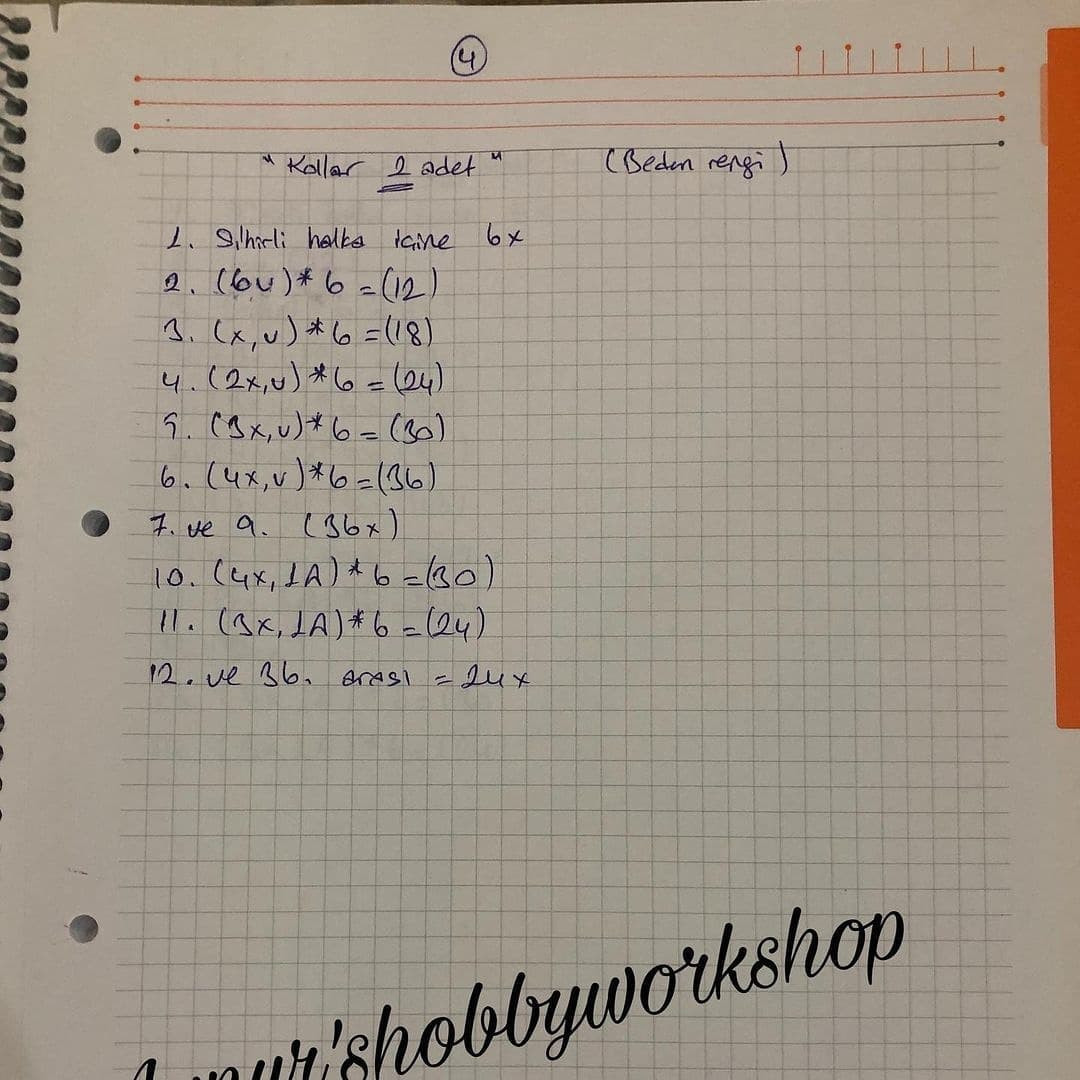 4
" Kollar 2 adet " (Beden rengi)
1. Sihirli halka içine 6x
2. (6v)*6=(12)
3. (x,v)*6=(18)
4. (2x,v)*6=(24)
5. (3x,v)*6=(30)
6. (4x,v)*6=(36)
7. ve 9. (36x)
10. (4x,1A)*6=(30)
11. (3x,1A)*6=(24)
12. ve 36. arası = 24x